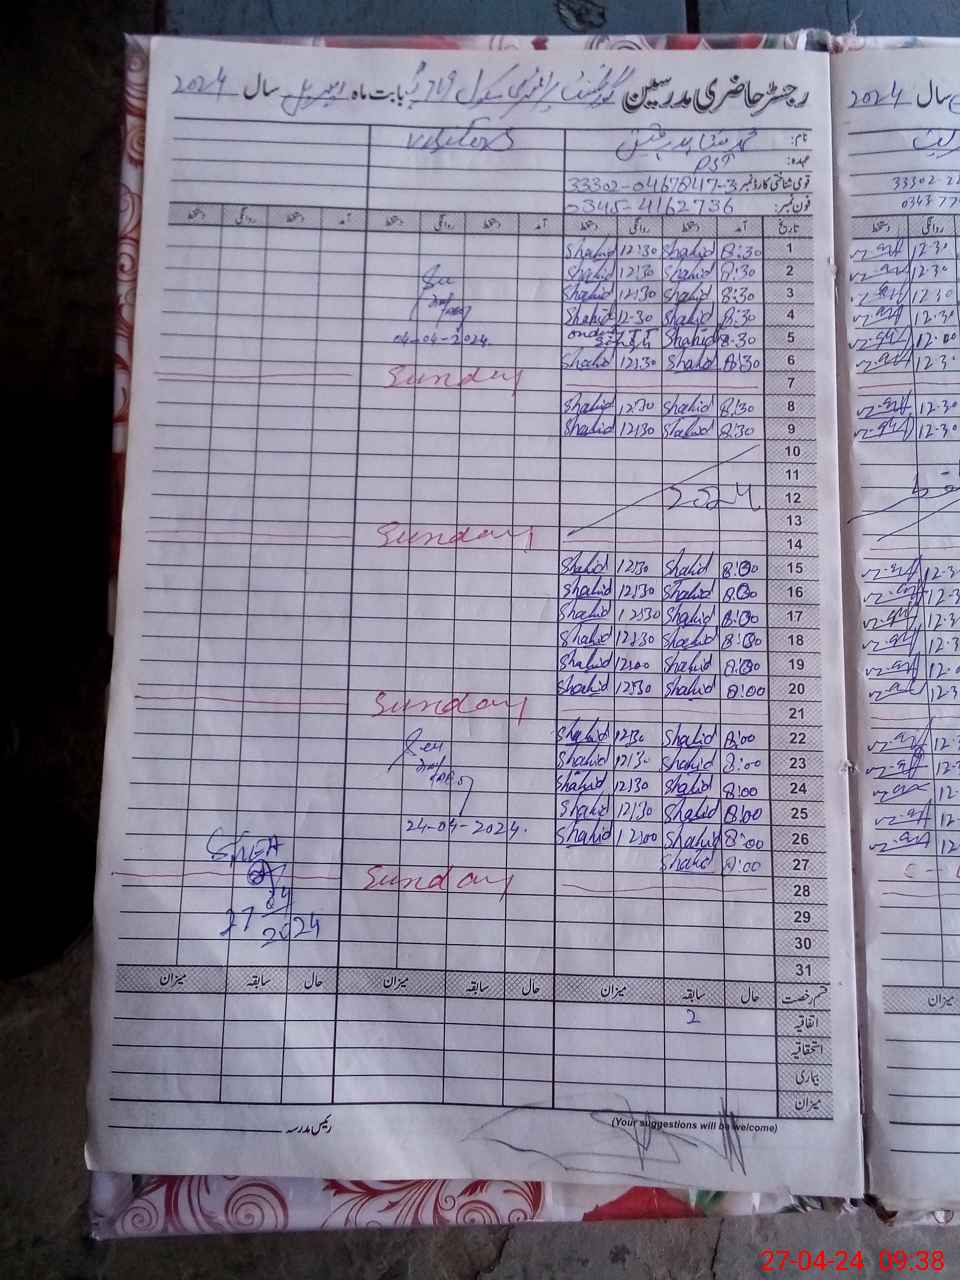 رجسٹر حاضری مدرسین گورنمنٹ پرائمری سکول 719 گ ب بابت ماہ اپریل سال 2024
سال 2024
نام:
visitors
عہدہ: PST
قومی شناختی کارڈ نمبر 33302-0467847-3
33302-22
فون نمبر: 0345-4162736
0343-77
تاریخ آمد دستخط روانگی دستخط آمد دستخط روانگی دستخط آمد دستخط روانگی دستخط
1 8:30 Shahid 12:30 Shahid 12-30
2 8:30 Shahid 12:30 Shahid 12-30
3 8:30 Shahid 12:30 Shahid 12-30
4 8:30 Shahid 12-30 Shahid 12-30
5 8-30 Shahid 04-04-2024 12-00
6 8:30 Shahid 12:30 Shahid 12-3
7 Sunday
8 8:30 Shahid 12:30 Shahid 12-30
9 8:30 Shahid 12:30 Shahid 12-30
10
11
12 2024
13
14 Sunday
15 8:00 Shahid 12:30 Shahid 12-3
16 8:00 Shahid 12:30 Shahid 12-3
17 8:00 Shahid 12:30 Shahid 12-3
18 8:00 Shahid 12:30 Shahid 12-3
19 8:00 Shahid 12:00 Shahid 12-0
20 8:00 Shahid 12:30 Shahid 12-3
21 Sunday
22 8:00 Shahid 12:30 Shahid 12-3
23 8:00 Shahid 12:30 Shahid 12-3
24 8:00 Shahid 12:30 Shahid 12-
25 8:00 Shahid 12:30 Shahid 12-
26 8:00 Shahid 12:00 Shahid 24-04-2024. 12
27 8:00 Shahid
28 Sunday
29 27
30 2024
31
قسم رخصت حال سابقہ میزان حال سابقہ میزان حال سابقہ میزان
میزان
اتفاقیہ 2
استحقاقیہ
بیماری
میزان
(Your suggestions will be welcome)
رئیس مدرسہ
27-04-24 09:38